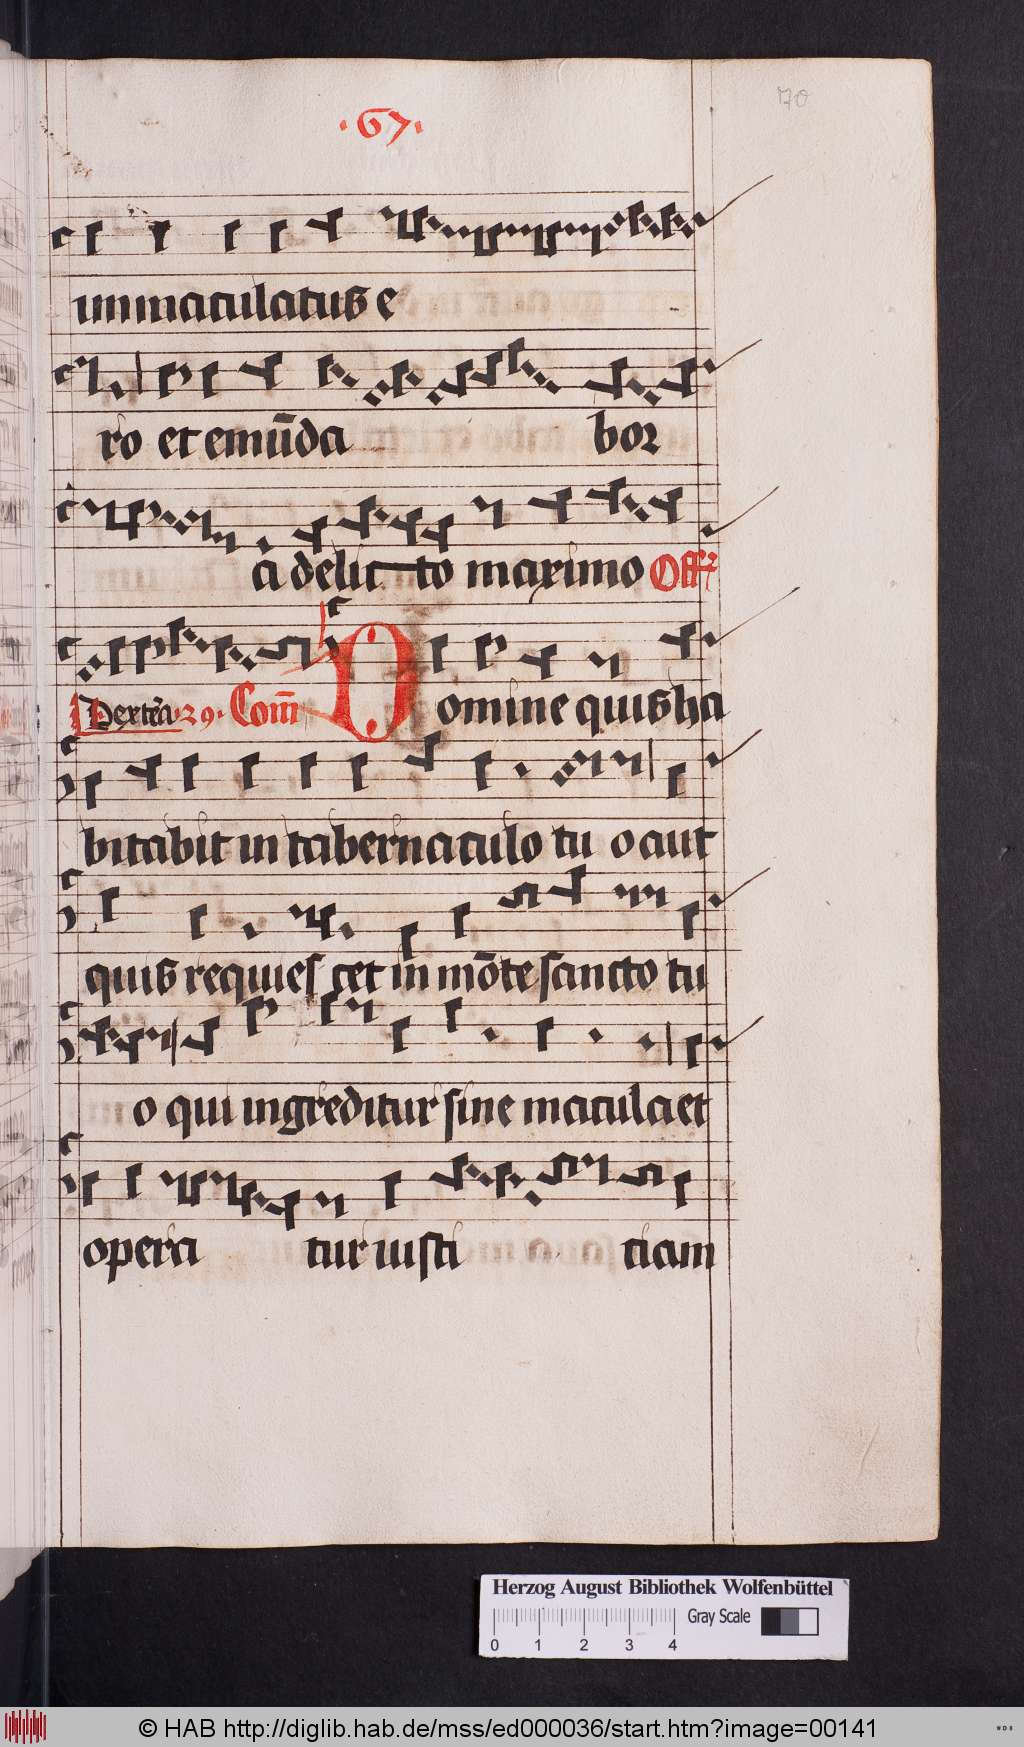 70
·67·
immaculatus e
ro et emūda bor
a delicto maximo Off
Dextera 29· Com̄ Domine quis ha
bitabit in tabernaculo tu o aut
quis requies cet in mōte sancto tu
o qui ingreditur sine macula et
opera tur iusti ciam
Herzog August Bibliothek Wolfenbüttel
0 1 2 3 4 Gray Scale
© HAB http://diglib.hab.de/mss/ed000036/start.htm?image=00141